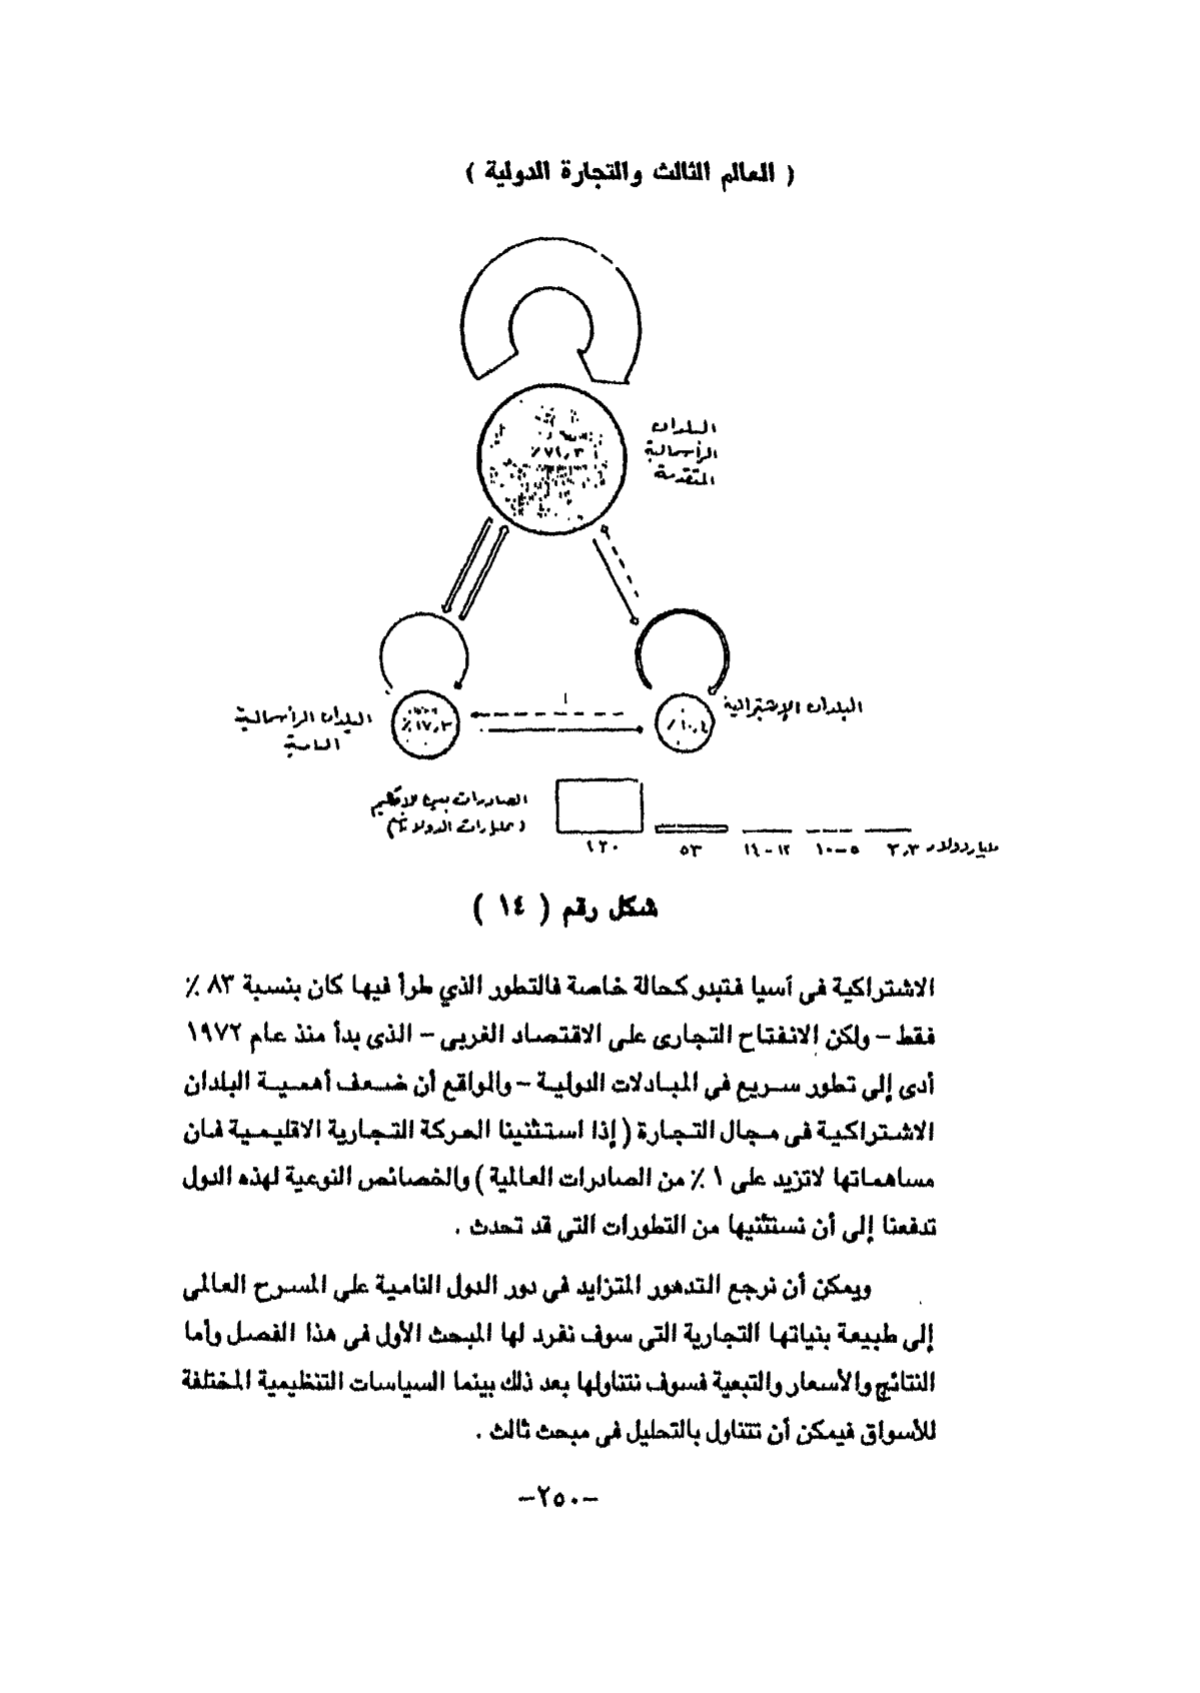 ( العالم الثالث والتجارة الدولية )
البلدان
الرأسمالية
المتقدمة
البلدان الإشتراكية
٪ ١٠,٤
البلدان الرأسمالية
النامية
٪ ١٧,٣
الصادرات بين الأقاليم
٥٣
١٢ - ١٤
٥ - ١٠
٣,٣ مليار دولار
شكل رقم ( ١٤ )
الاشتراكية فى آسيا فتبدو كحالة خاصة فالتطور الذي طرأ فيها كان بنسبة ٨٣ ٪
فقط – ولكن الانفتاح التجارى على الاقتصاد الغربى – الذى بدأ منذ عام ١٩٧٢
أدى إلى تطور سريع في المبادلات الدولية – والواقع أن ضعف أهمية البلدان
الاشتراكية فى مجال التجارة ( إذا استثنينا الحركة التجارية الاقليمية فان
مساهماتها لاتزيد على ١ ٪ من الصادرات العالمية ) والخصائص النوعية لهذه الدول
تدفعنا إلى أن نستثنيها من التطورات التى قد تحدث .
ويمكن أن نرجع التدهور المتزايد فى دور الدول النامية على المسرح العالمى
إلى طبيعة بنياتها التجارية التى سوف نفرد لها المبحث الأول فى هذا الفصل وأما
النتائج والأسعار والتبعية فسوف نتناولها بعد ذلك بينما السياسات التنظيمية المختلفة
للأسواق فيمكن أن تتناول بالتحليل فى مبحث ثالث .
–٢٥٠–